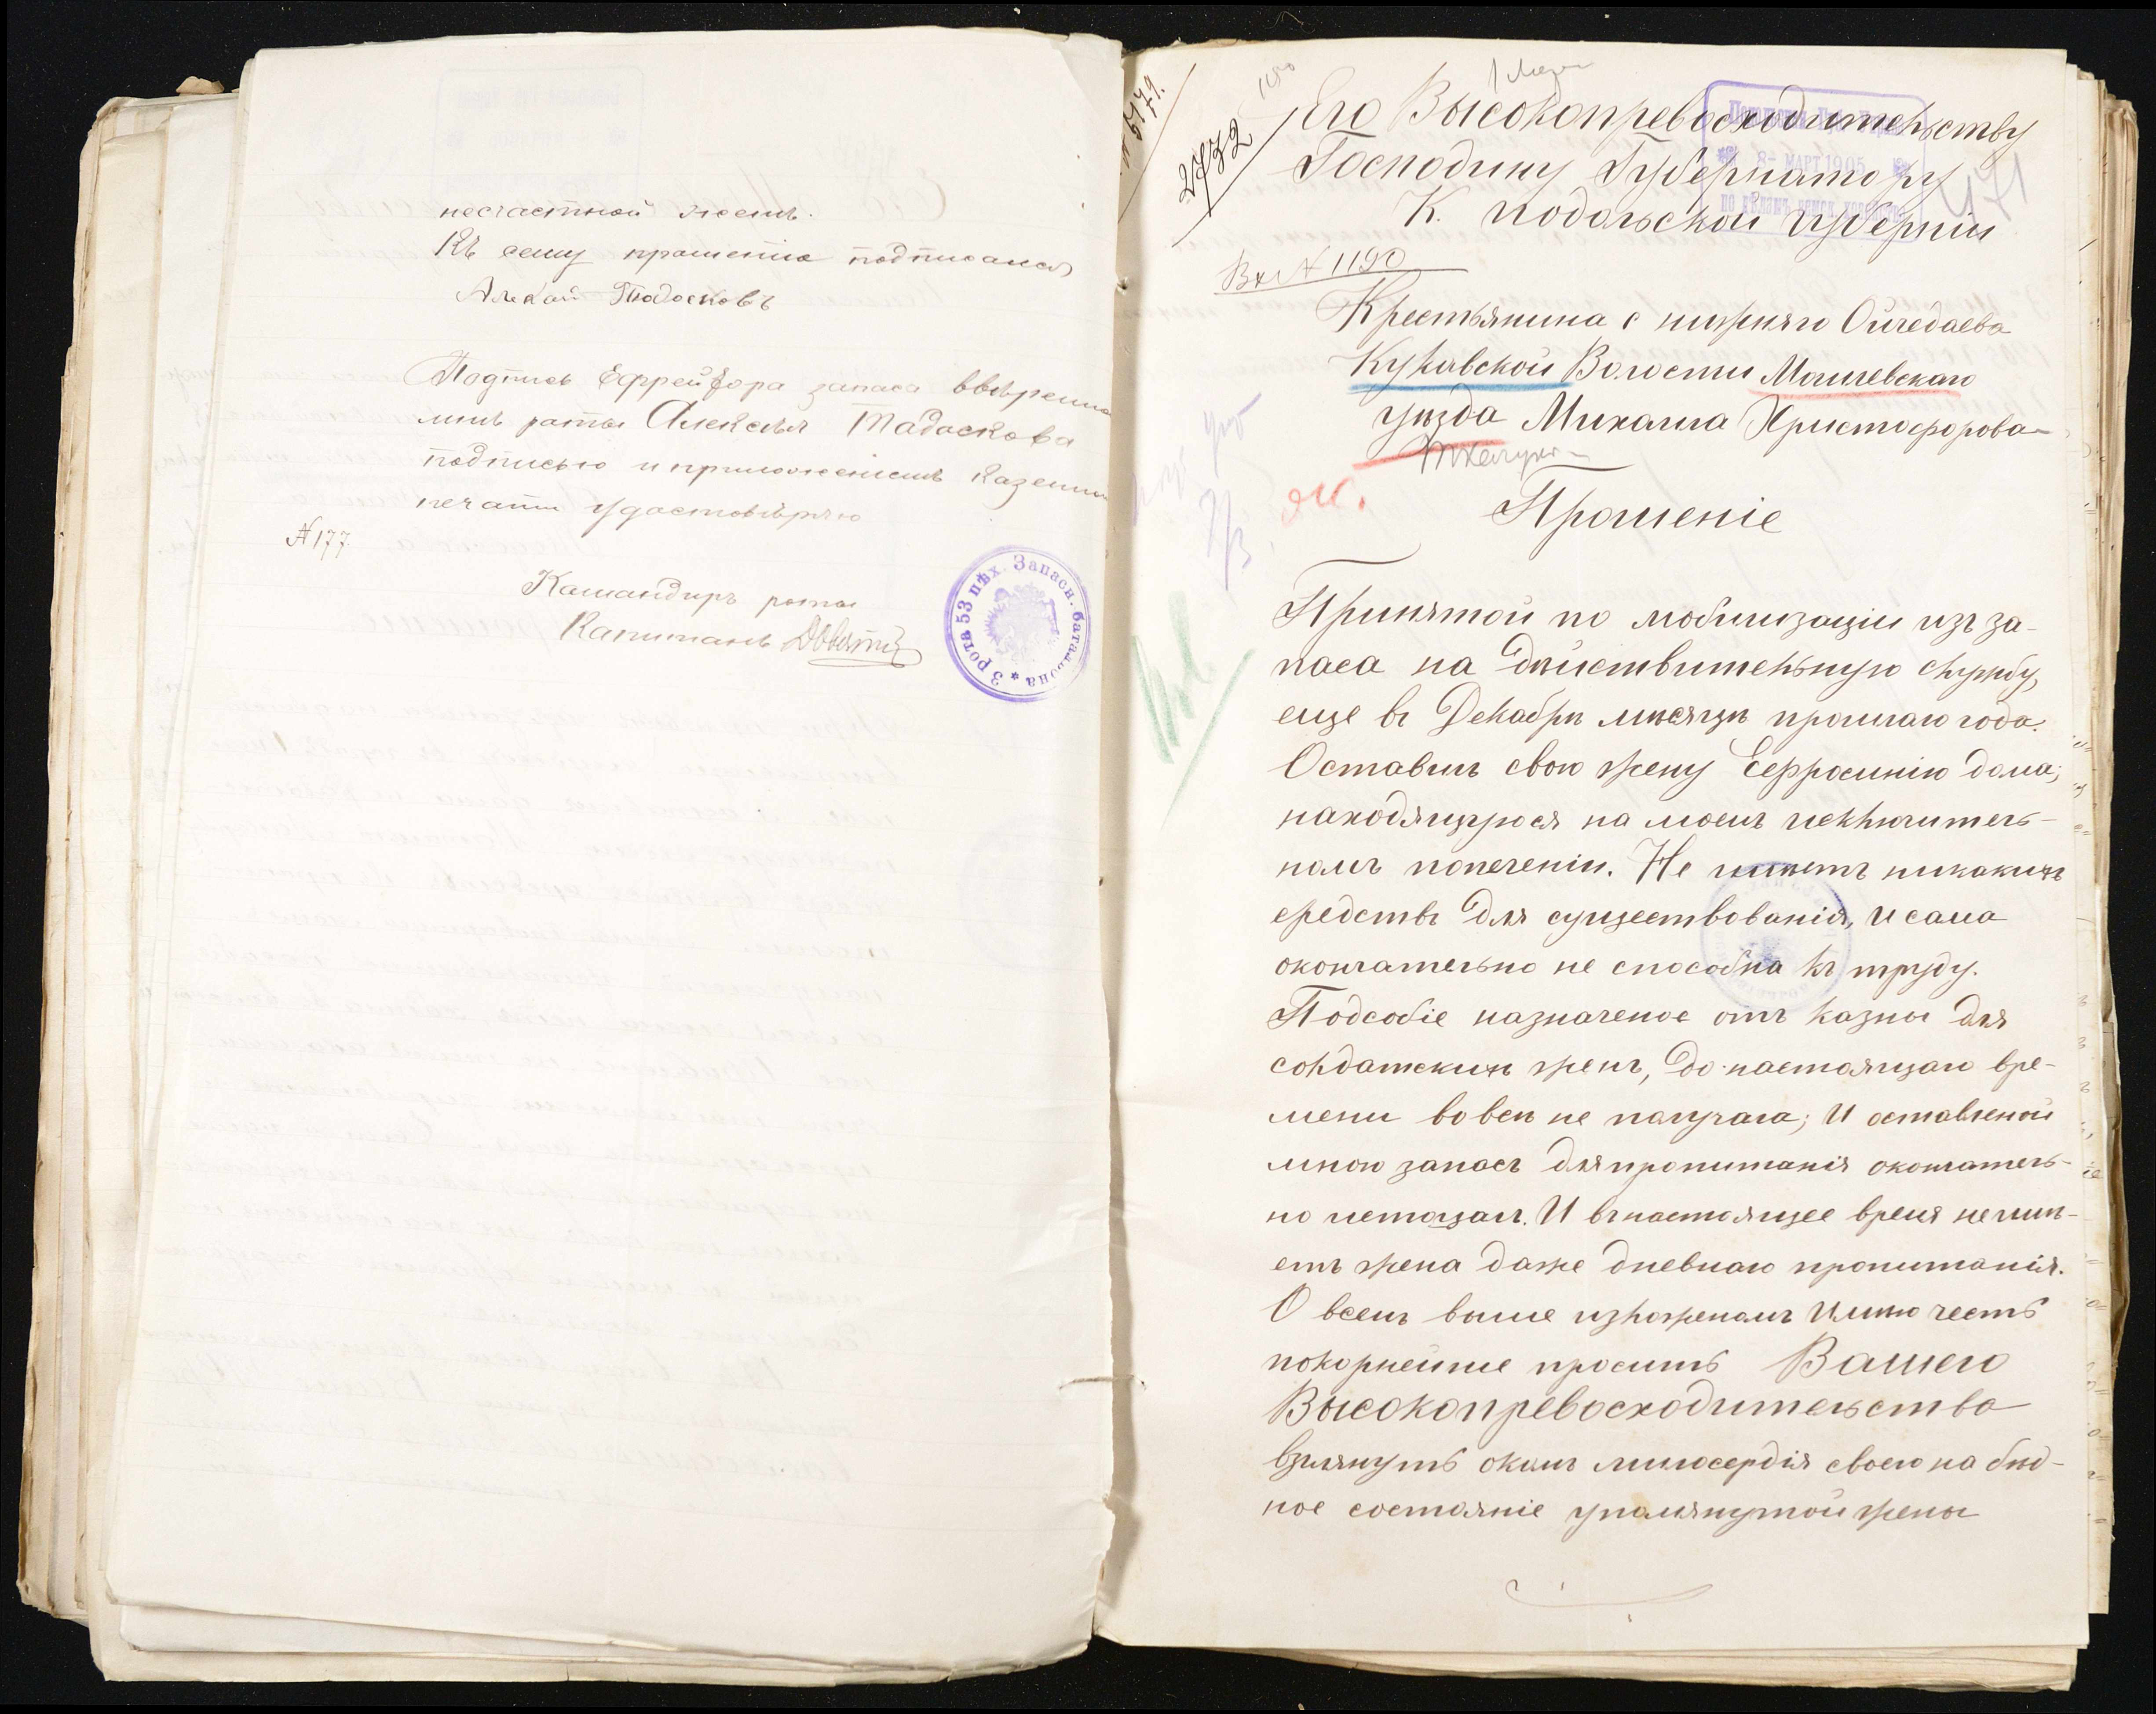 несчастной жены.
Къ сему прошенію подписался
Алекѣй Тодосковъ
Подпись Ефрейтора запаса ввѣренно
мнѣ роты Алексѣя Тадоскова
подписью и приложеніемъ казенной
печати удостовѣряю
№177.
Командиръ роты
Капитанъ
3 рота 53 пѣх. Запасн. баталіона *
2732
Его Высокопревосходительству
Господину Губернатору
К. подольской губерніи
8- МАРТ 1905
471
Вх №1190
Крестьянина с нижняго Ольчедаева
Кукавской Волости Могилевскаго
уѣзда Михаила Христофорова
Прошеніе
Принятой по мобилизаціи изъ за-
паса на дѣйствительную службу,
еще въ Декабрѣ мѣсяцѣ прошлаго года.
Оставилъ свою жену Евфросинію дома;
находящуюся на моемъ исключитель-
номъ попеченіи. Не имѣетъ никакихъ
средствъ для существованія, и сама
окончательно не способна къ труду.
Подсобіе назначеное отъ казны для
солдатскихъ женъ, до настоящаго вре-
мени вовсѣ не получала; И оставленой
мною запасъ для пропитанія окончатель-
но истощал. И въ настоящее время неимѣ-
етъ жена даже дневнаго пропитанія.
О всемъ выше изложеномъ Имѣю честь
покорнейше просить Вашего
Высокопревосходительства
взглянуть окомъ милосердія своего на бѣд-
ное состояніе упомянутой жены